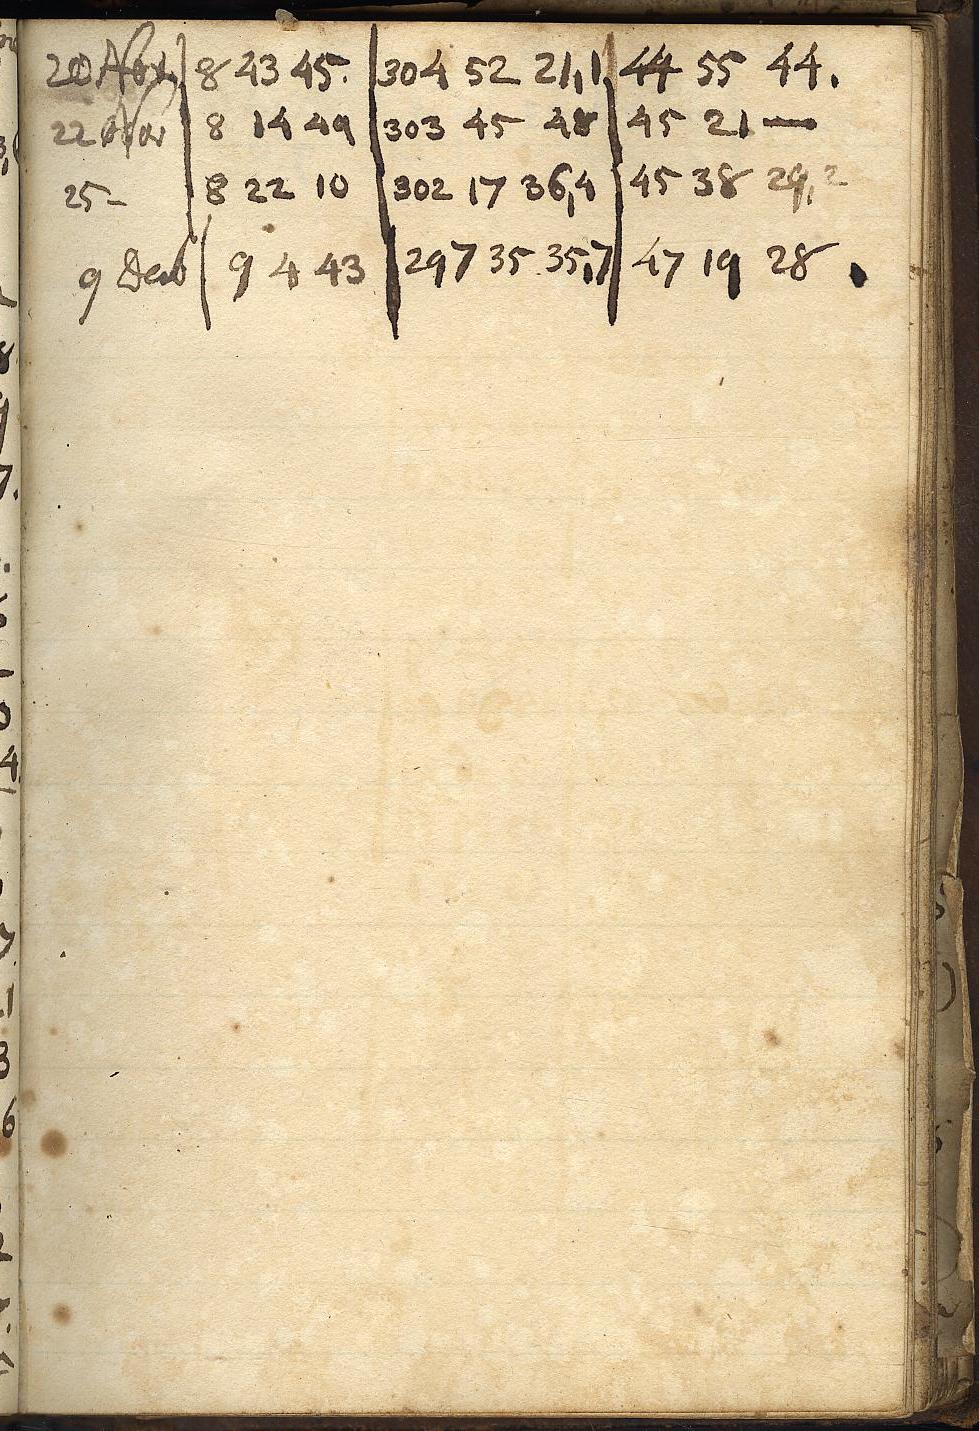 20 Nov. 8 43 45. 304 52 21,1 44 55 44.
22 Nov 8 14 49 303 45 48 45 21 —
25 - 8 22 10 302 17 36,4 45 38 29,2
9 Dec 9 4 43 297 35 35,7 47 19 28.